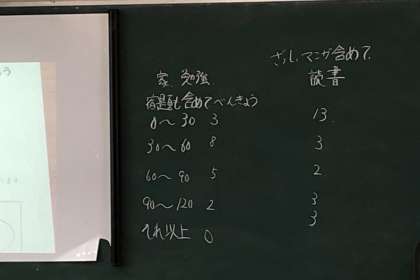 ざっし、マンガ含めて、
家、勉強
読書
宿題も含めてべんきょう
0〜30 3
13
30〜60 8
3
60〜90 5
2
90〜120 2
3
それ以上 0
3